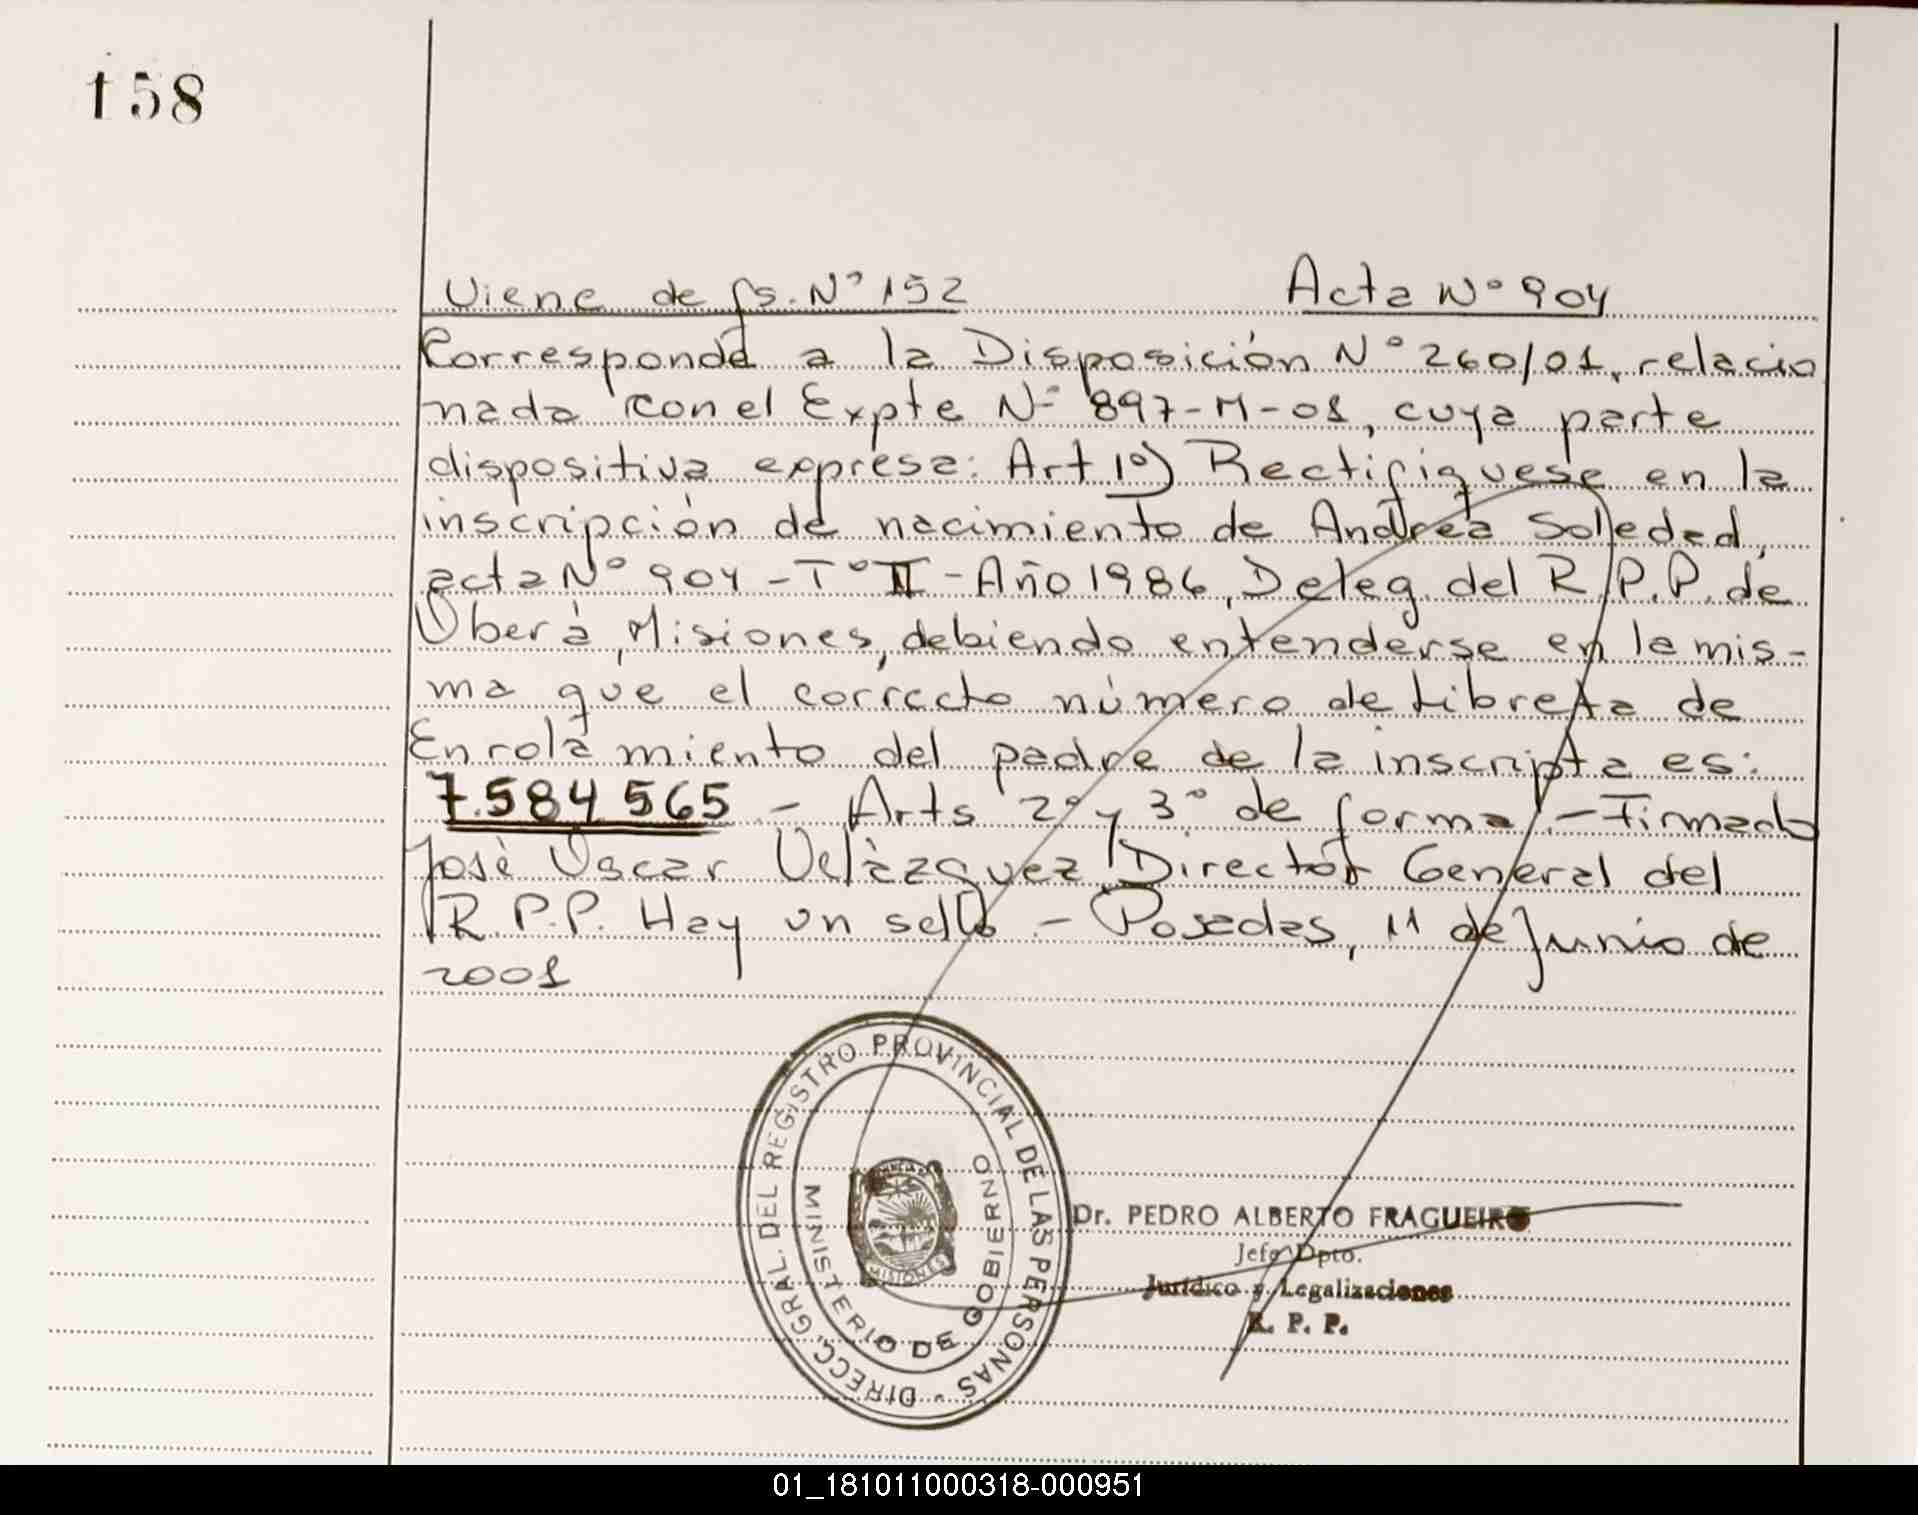 158
Viene de fs. Nº 152 Acta Nº 904
Corresponde a la Disposición Nº 260/01, relacio
nada con el Expte Nº 897-M-01, cuya parte
dispositiva expresa: Art 1º) Rectifiquese en la
inscripción de nacimiento de Andrea Soledad,
acta Nº 904 - Tº II - Año 1986, Deleg. del R.P.P. de
Oberá, Misiones, debiendo entenderse en la mis-
ma que el correcto número de Libreta de
Enrolamiento del padre de la inscripta es:
7.584.565 - Arts 2º y 3º de forma. - Firmado
José Oscar Velázquez Director General del
R.P.P. Hay un sello - Posadas, 11 de Junio de
2001
DIRECC. GRAL. DEL REGISTRO PROVINCIAL DE LAS PERSONAS -
MINISTERIO DE GOBIERNO
MISIONES
Dr. PEDRO ALBERTO FRAGUEIRO
Jefe Dpto.
Jurídico y Legalizaciones
R. P. P.
01_181011000318-000951